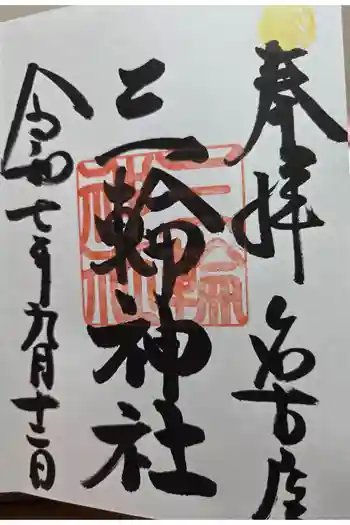 奉拝 名古屋
三輪神社
令和七年九月十二日
三輪
神社